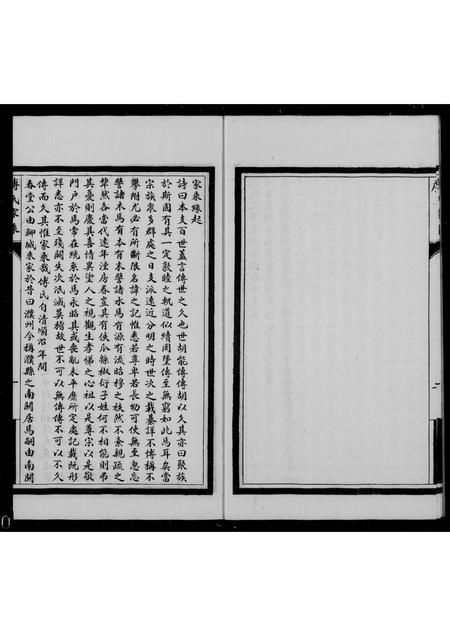 家乘緣起
詩曰本支百世蓋言傳世之久也世胡能傳傳胡以久其亦曰聚族
於斯固有其一定敦睦之軌道似續閑墜傳至無窮如此焉耳矣當
宗族眾多群處之日支派遠近分明之時世次之載纂詳不傳稱不
舉附尤必有所斷限名諱之記惟悉若尊卑若長幼可使無至怠忘
譬諸木焉有本有末譬諸水焉有源有流昭穆之秩然不紊親疏之
犖然各當代遠年湮房眷豈具有佚瓜緜椒衍子姓何不相能則弔
其憂則慶其喜情異塗人之視觀生孝悌之心祖以是尊宗以是敬
門戶於焉常在統系於焉永昭其或喪亂未平塵所定處記載既形
詳志亦不至殘闕失次泯滅莫稽故世不可以無傳傳不可以不久
傳而久其惟家乘哉傅氏自清順治年間
春堂公由聊城來家於昔曰濮州今稱濮縣之南關居焉嗣由南關
傅氏家乘